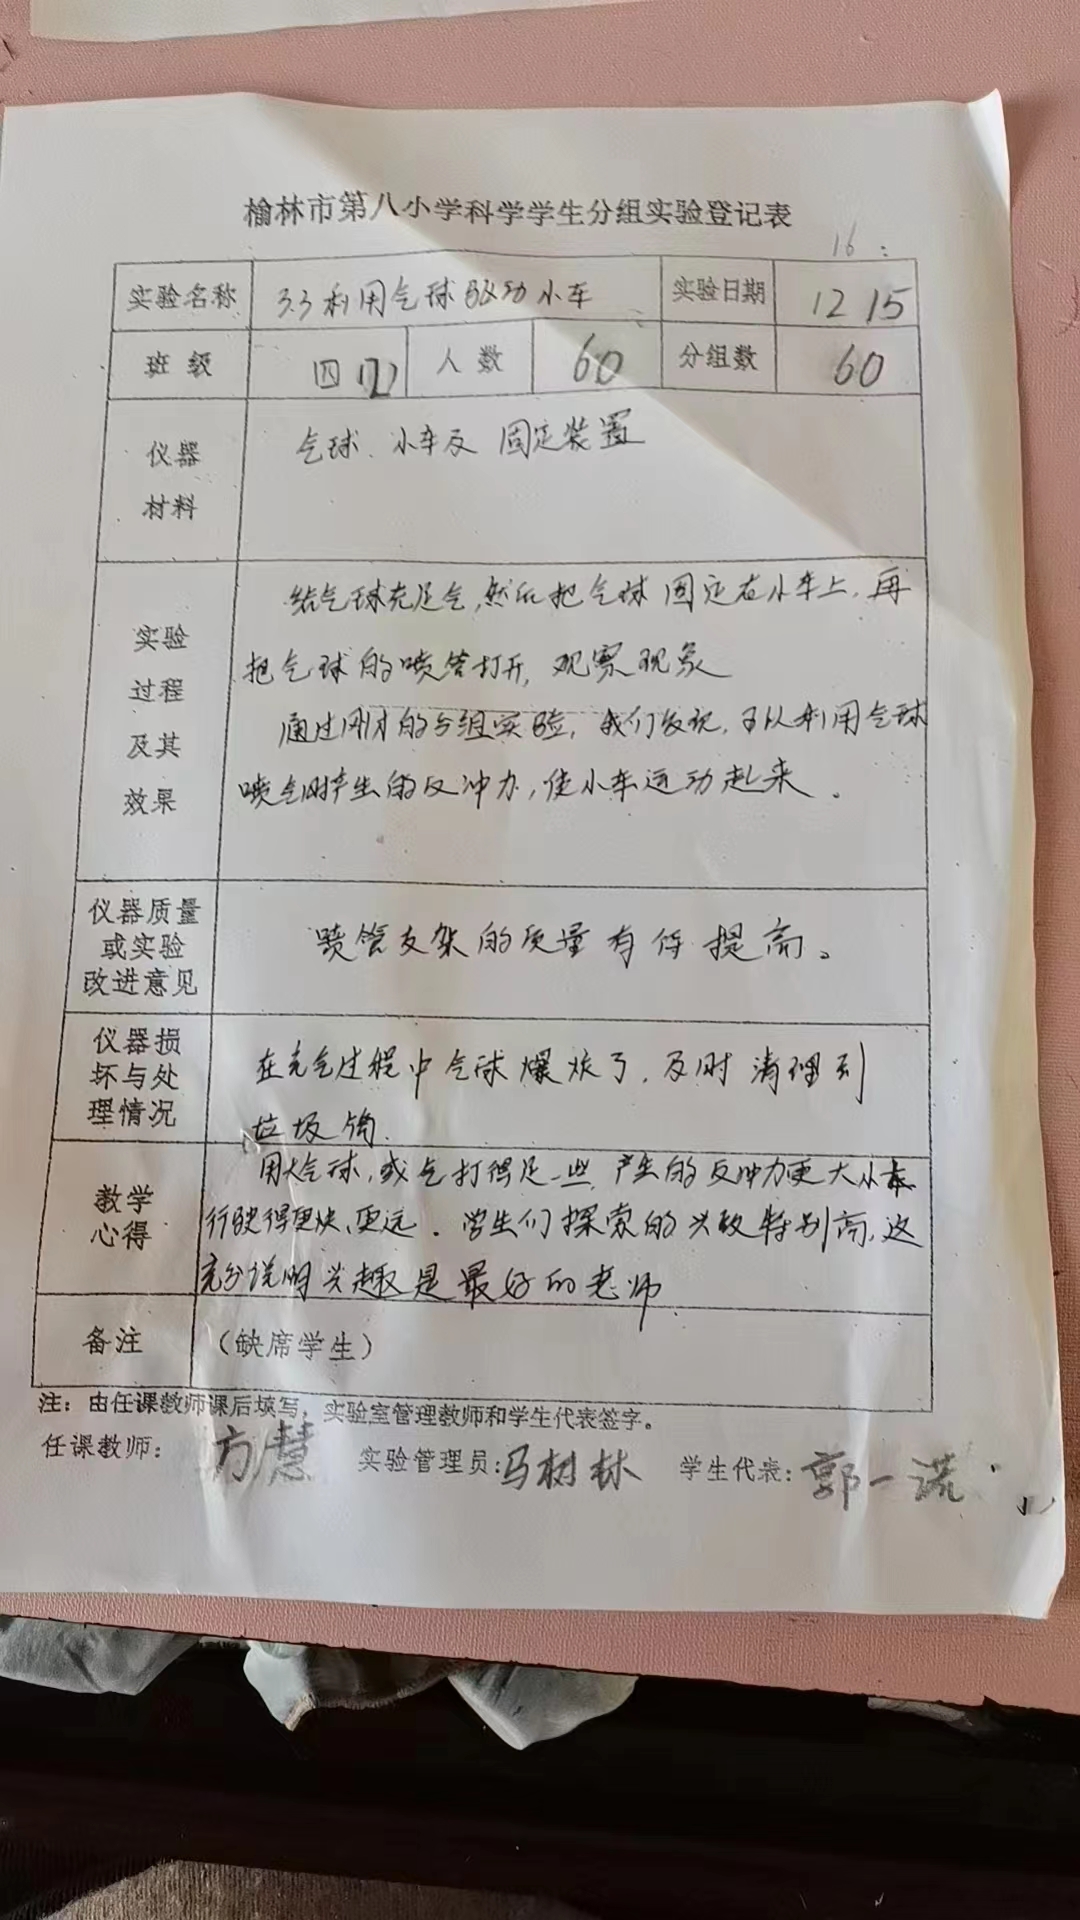 榆林市第八小学科学学生分组实验登记表
16:
实验名称 3.3利用气球驱动小车 实验日期 12 15
班级 四 人数 60 分组数 60
仪器材料 气球、小车及 固定装置
实验过程及其效果
给气球充足气,然后把气球固定在小车上,再
把气球的喷管打开,观察现象
通过刚才的分组实验,我们发现,可以利用气球
喷气时产生的反冲力,使小车运动起来。
仪器质量或实验改进意见 喷管支架的质量有待提高。
仪器损坏与处理情况 在充气过程中气球爆炸了,及时清理到
垃圾筒.
教学心得 用大气球,或气打得足一些,产生的反冲力更大小车
行驶得更快、更远。学生们探索的兴致特别高,这
充分说明兴趣是最好的老师
备注 (缺席学生)
注:由任课教师课后填写,实验室管理教师和学生代表签字。
任课教师: 方慧 实验管理员:马树林 学生代表:郭一诺